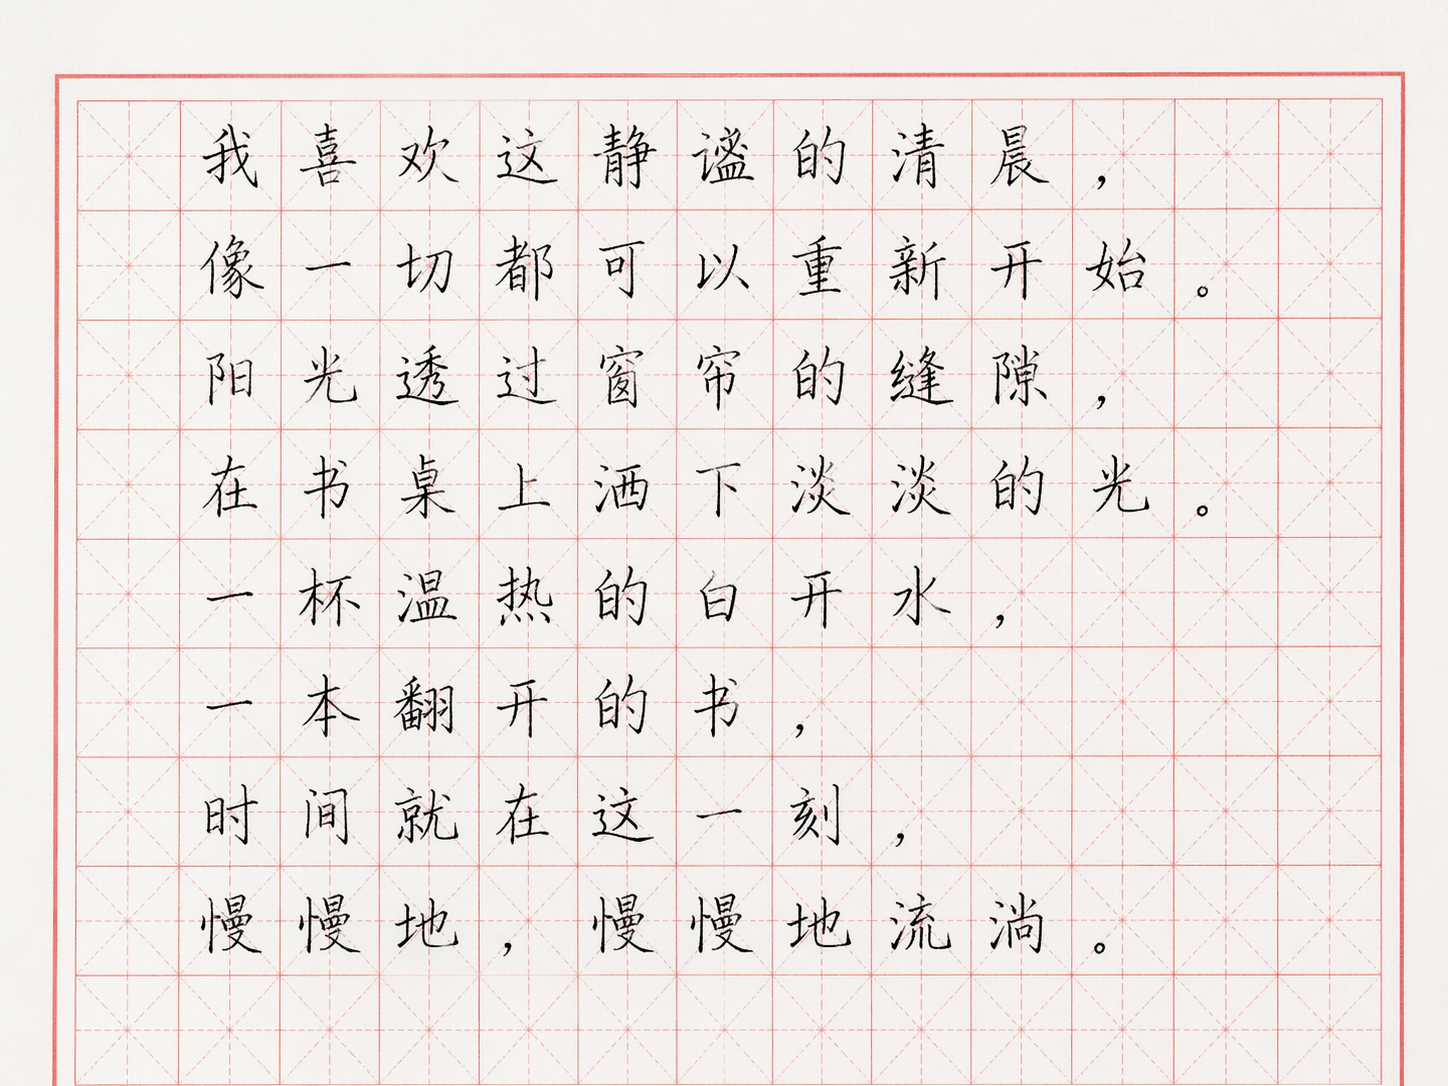 我喜欢这静谧的清晨，
像一切都可以重新开始。
阳光透过窗帘的缝隙，
在书桌上洒下淡淡的光。
一杯温热的白开水，
一本翻开的书，
时间就在这一刻，
慢慢地，慢慢地流淌。